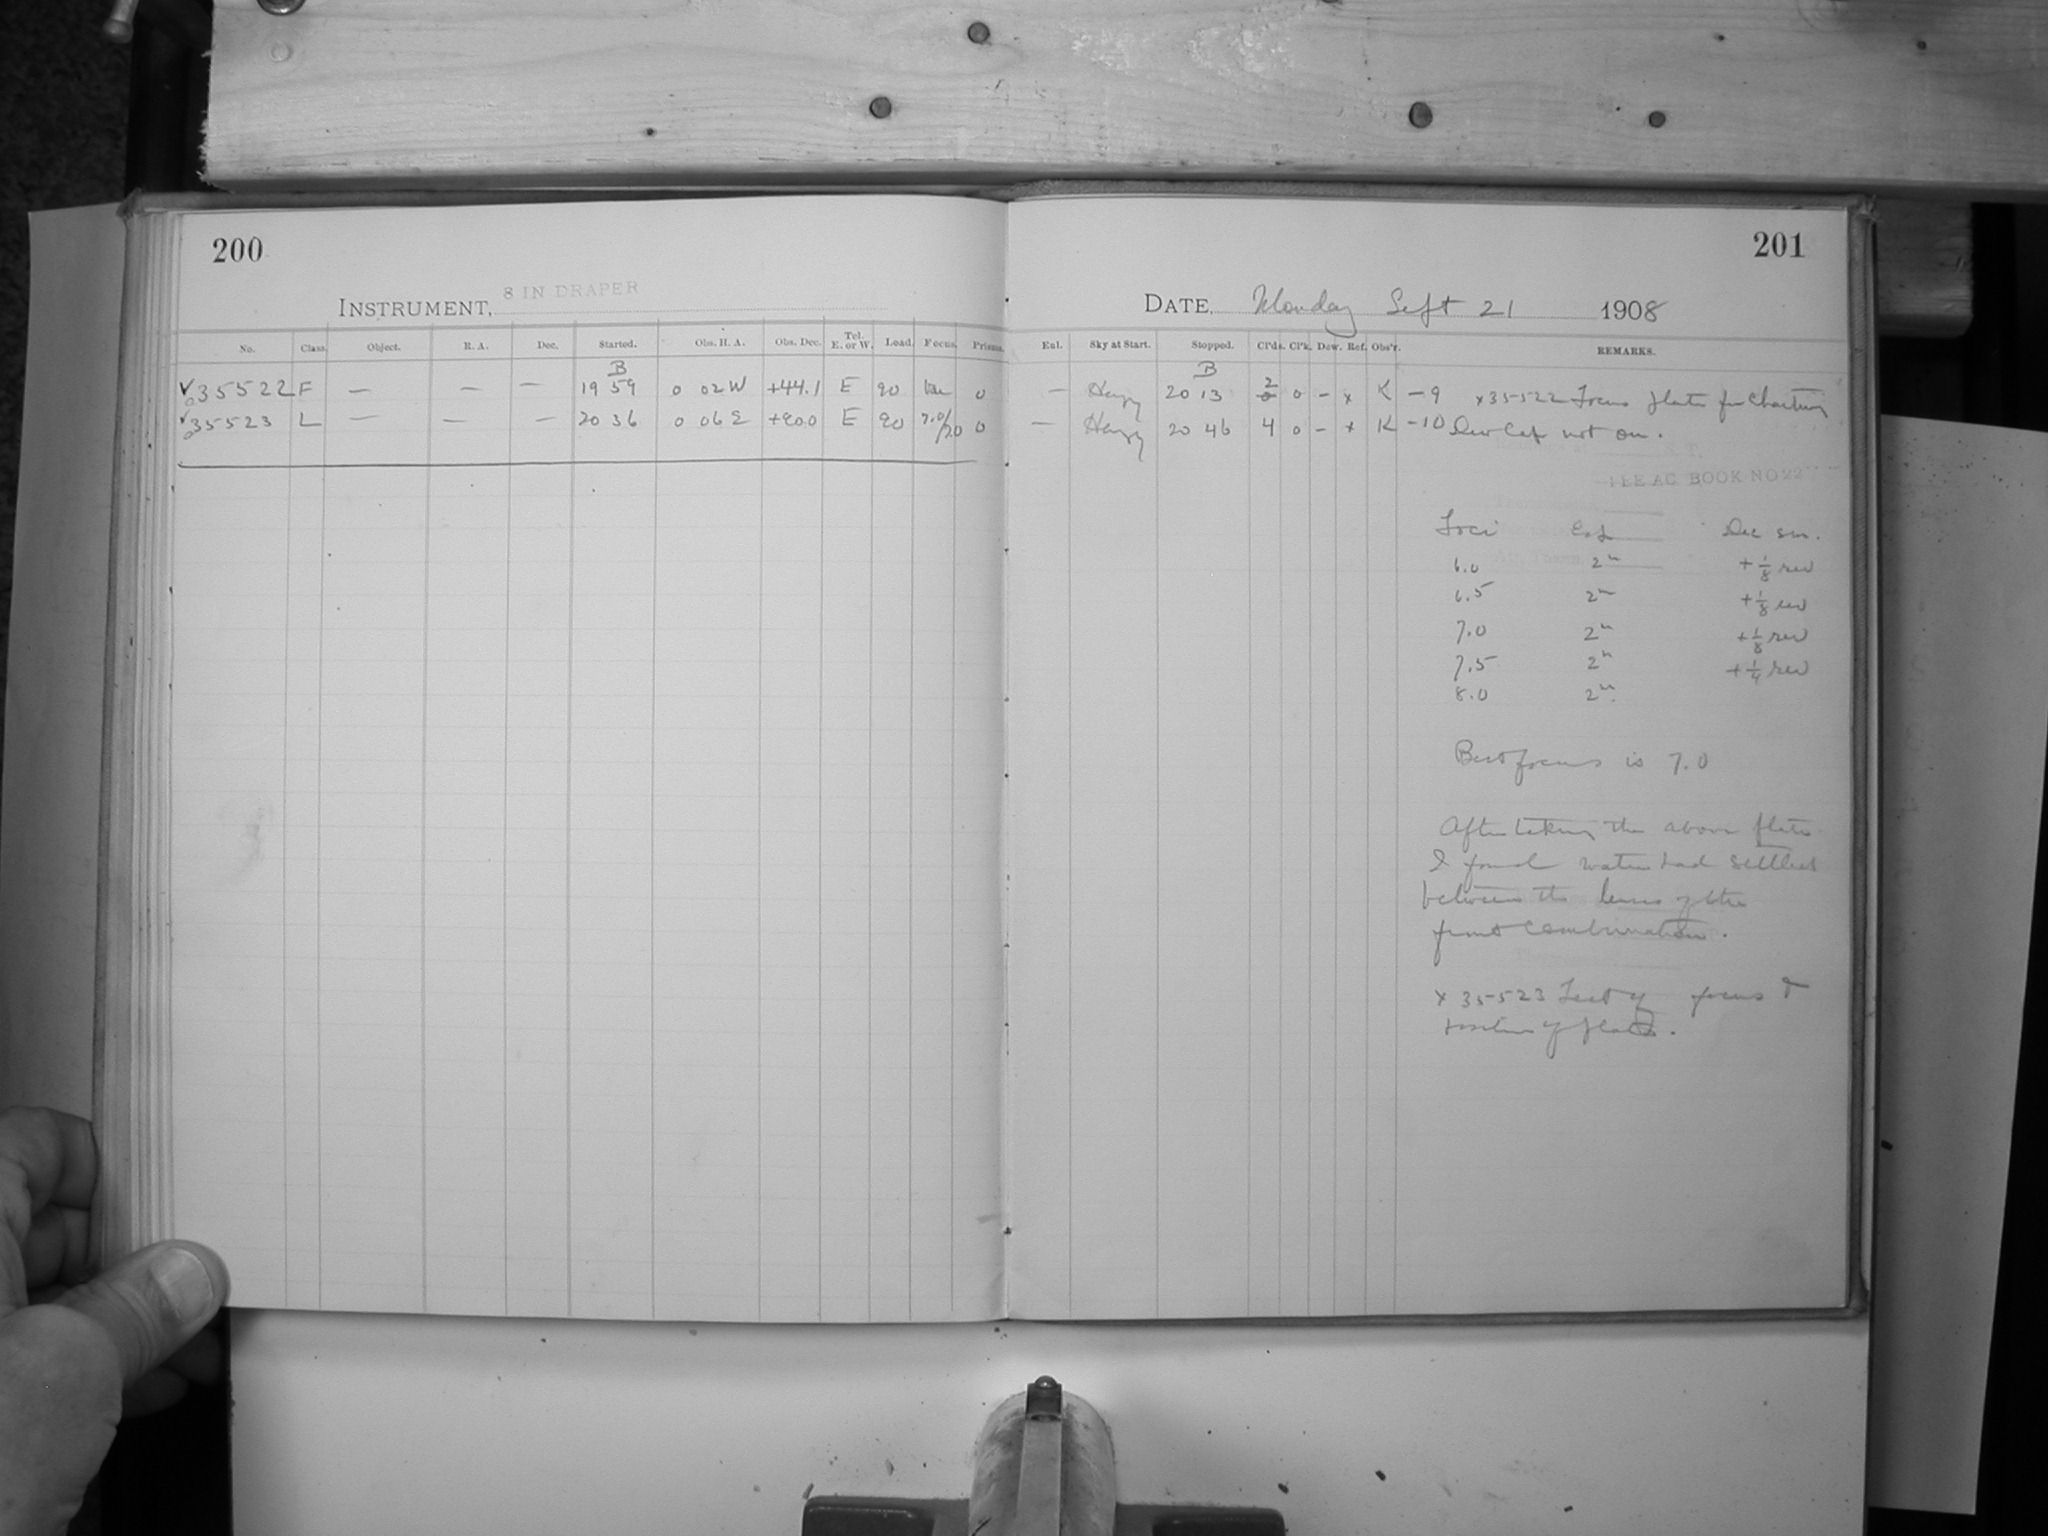 200
INSTRUMENT, 8 IN DRAPER
No. Class. Object. R. A. Dec. Started. Obs. H. A. Obs. Dec. Tel. E. or W. Load. Focus. Prisms.
B
✓35522 F — — — 19 59 0 02 W +44.1 E 90 Var 0
✓35523 L — — — 20 36 0 06 E E 90 7.0/70 0
201
DATE, Monday Sept 21 1908
Enl. Sky at Start. Stopped. Cl'ds. Cl'k. Dew. Ref. Obs'r. REMARKS.
B
— Hazy 20 13 2 0 0 – x K –9 x 35522 Focus plate for Charting
— Hazy 20 46 4 0 – x K –10 Dew Cap not on.
BOOK NO 22
Foci Exp Dec sm.
6.0 2m +1/8 rev
6.5 2m +1/8 rev
7.0 2m +1/8 rev
7.5 2m +1/4 rev
8.0 2m
Best focus is 7.0
After taking the above plate
I found water had settled
between the lenses of the
front combination.
x 35523 Test of focus &
of plate.